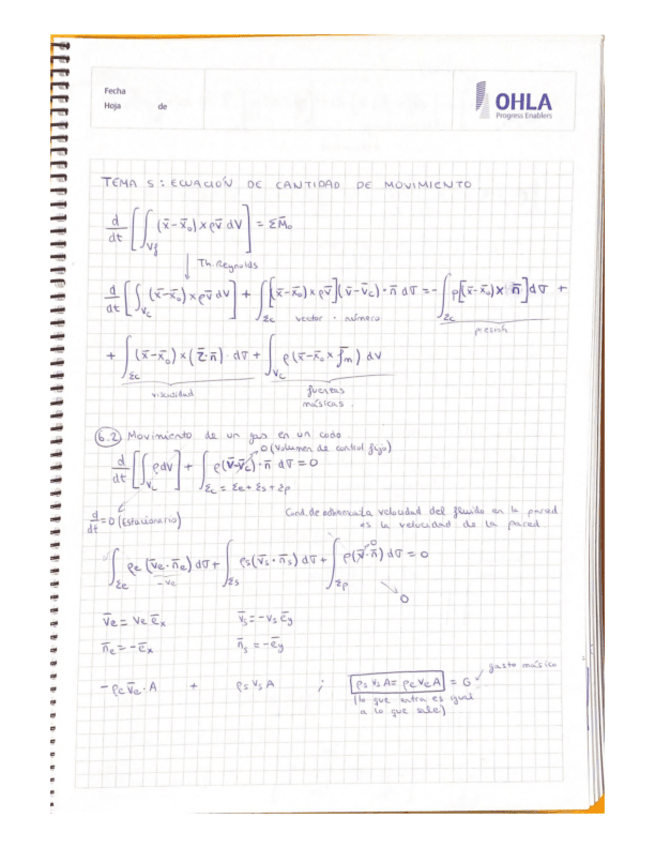 Fecha
Hoja de
OHLA
Progress Enablers
TEMA 5: ECUACIÓN DE CANTIDAD DE MOVIMIENTO
d/dt [∫_Vf (x̄-x̄₀)×ρv̄ dV] = ΣM̄₀
↓ Th. Reynolds
d/dt [∫_Vc (x̄-x̄₀)×ρv̄ dV] + ∫_Σc [(x̄-x̄₀)×ρv̄](v̄-v̄c)·n̄ dσ = -∫_Σc p[(x̄-x̄₀)× n̄]dσ +
vector · número
presión
+ ∫_Σc (x̄-x̄₀)×(τ̄·n̄)·dσ + ∫_Vc ρ(x̄-x̄₀ × f̄m) dV
viscosidad
fuerzas
másicas.
6.2) Movimiento de un gas en un codo
0 (Volumen de control fijo)
d/dt [∫_Vc ρdV] + ∫_Σc = Σe + Σs + Σp ρ(v̄-v̄c)·n̄ dσ = 0
d/dt = 0 (Estacionario)
Cond. de adherencia velocidad del fluido en la pared
es la velocidad de la pared.
∫_Σe ρe (v̄e·n̄e) dσ + ∫_Σs ρs(v̄s·n̄s) dσ + ∫_Σp ρ(v̄·n̄) dσ = 0
-ve
0
0
v̄e = ve ēx v̄s = -vs ēy
n̄e = -ēx n̄s = -ēy
gasto másico
-ρe v̄e·A + ρs vs A ; ρs vs A = ρe ve A = G
(lo que entra es igual
a lo que sale)